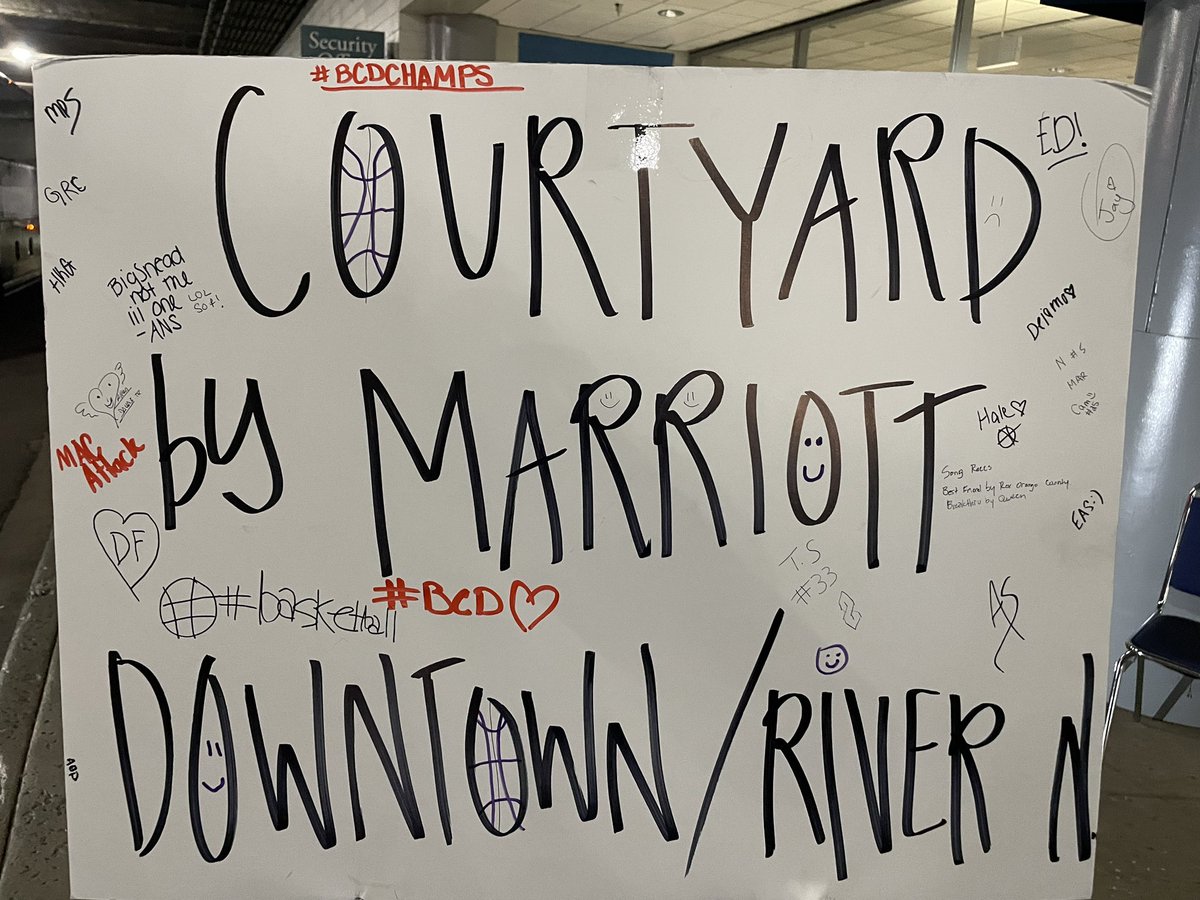 Security
#BCDCHAMPS
MPS
GRC
HhG
COURTYARD
ED!
Jay
Bigsnead
not me
iii one
-ANS
LOL
Dejamon
N #5
MAR
Cam
by MARRIOTT
MAC
Attack
Hale
Song Recs
Best Friend by Rex Orange County
Breakthru by Queen
EAS:)
DF
#basketball
#BCD
T.S
#33
2
AS
DOWNTOWN/RIVER N.
ADP